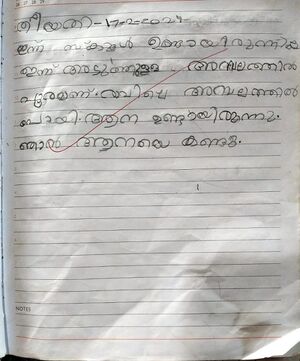 തീയതി - 17-2-2024
ഇന്ന് സ്കൂൾ ഉണ്ടായിരുന്നില്ല
ഇന്ന് അടുത്തുള്ള അമ്പലത്തിൽ
പൂരമാണ്. അവിടെ അമ്പലത്തിൽ
പോയി. ആന ഉണ്ടായിരുന്നു.
ഞാൻ ആനയെ കണ്ടു.
NOTES